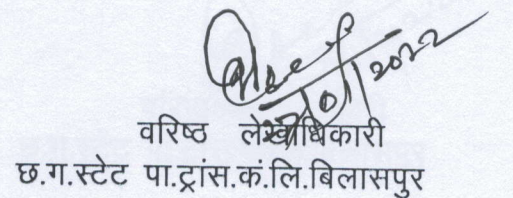 2022
वरिष्ठ लेखाधिकारी
छ.ग.स्टेट पा.ट्रांस.कं.लि.बिलासपुर